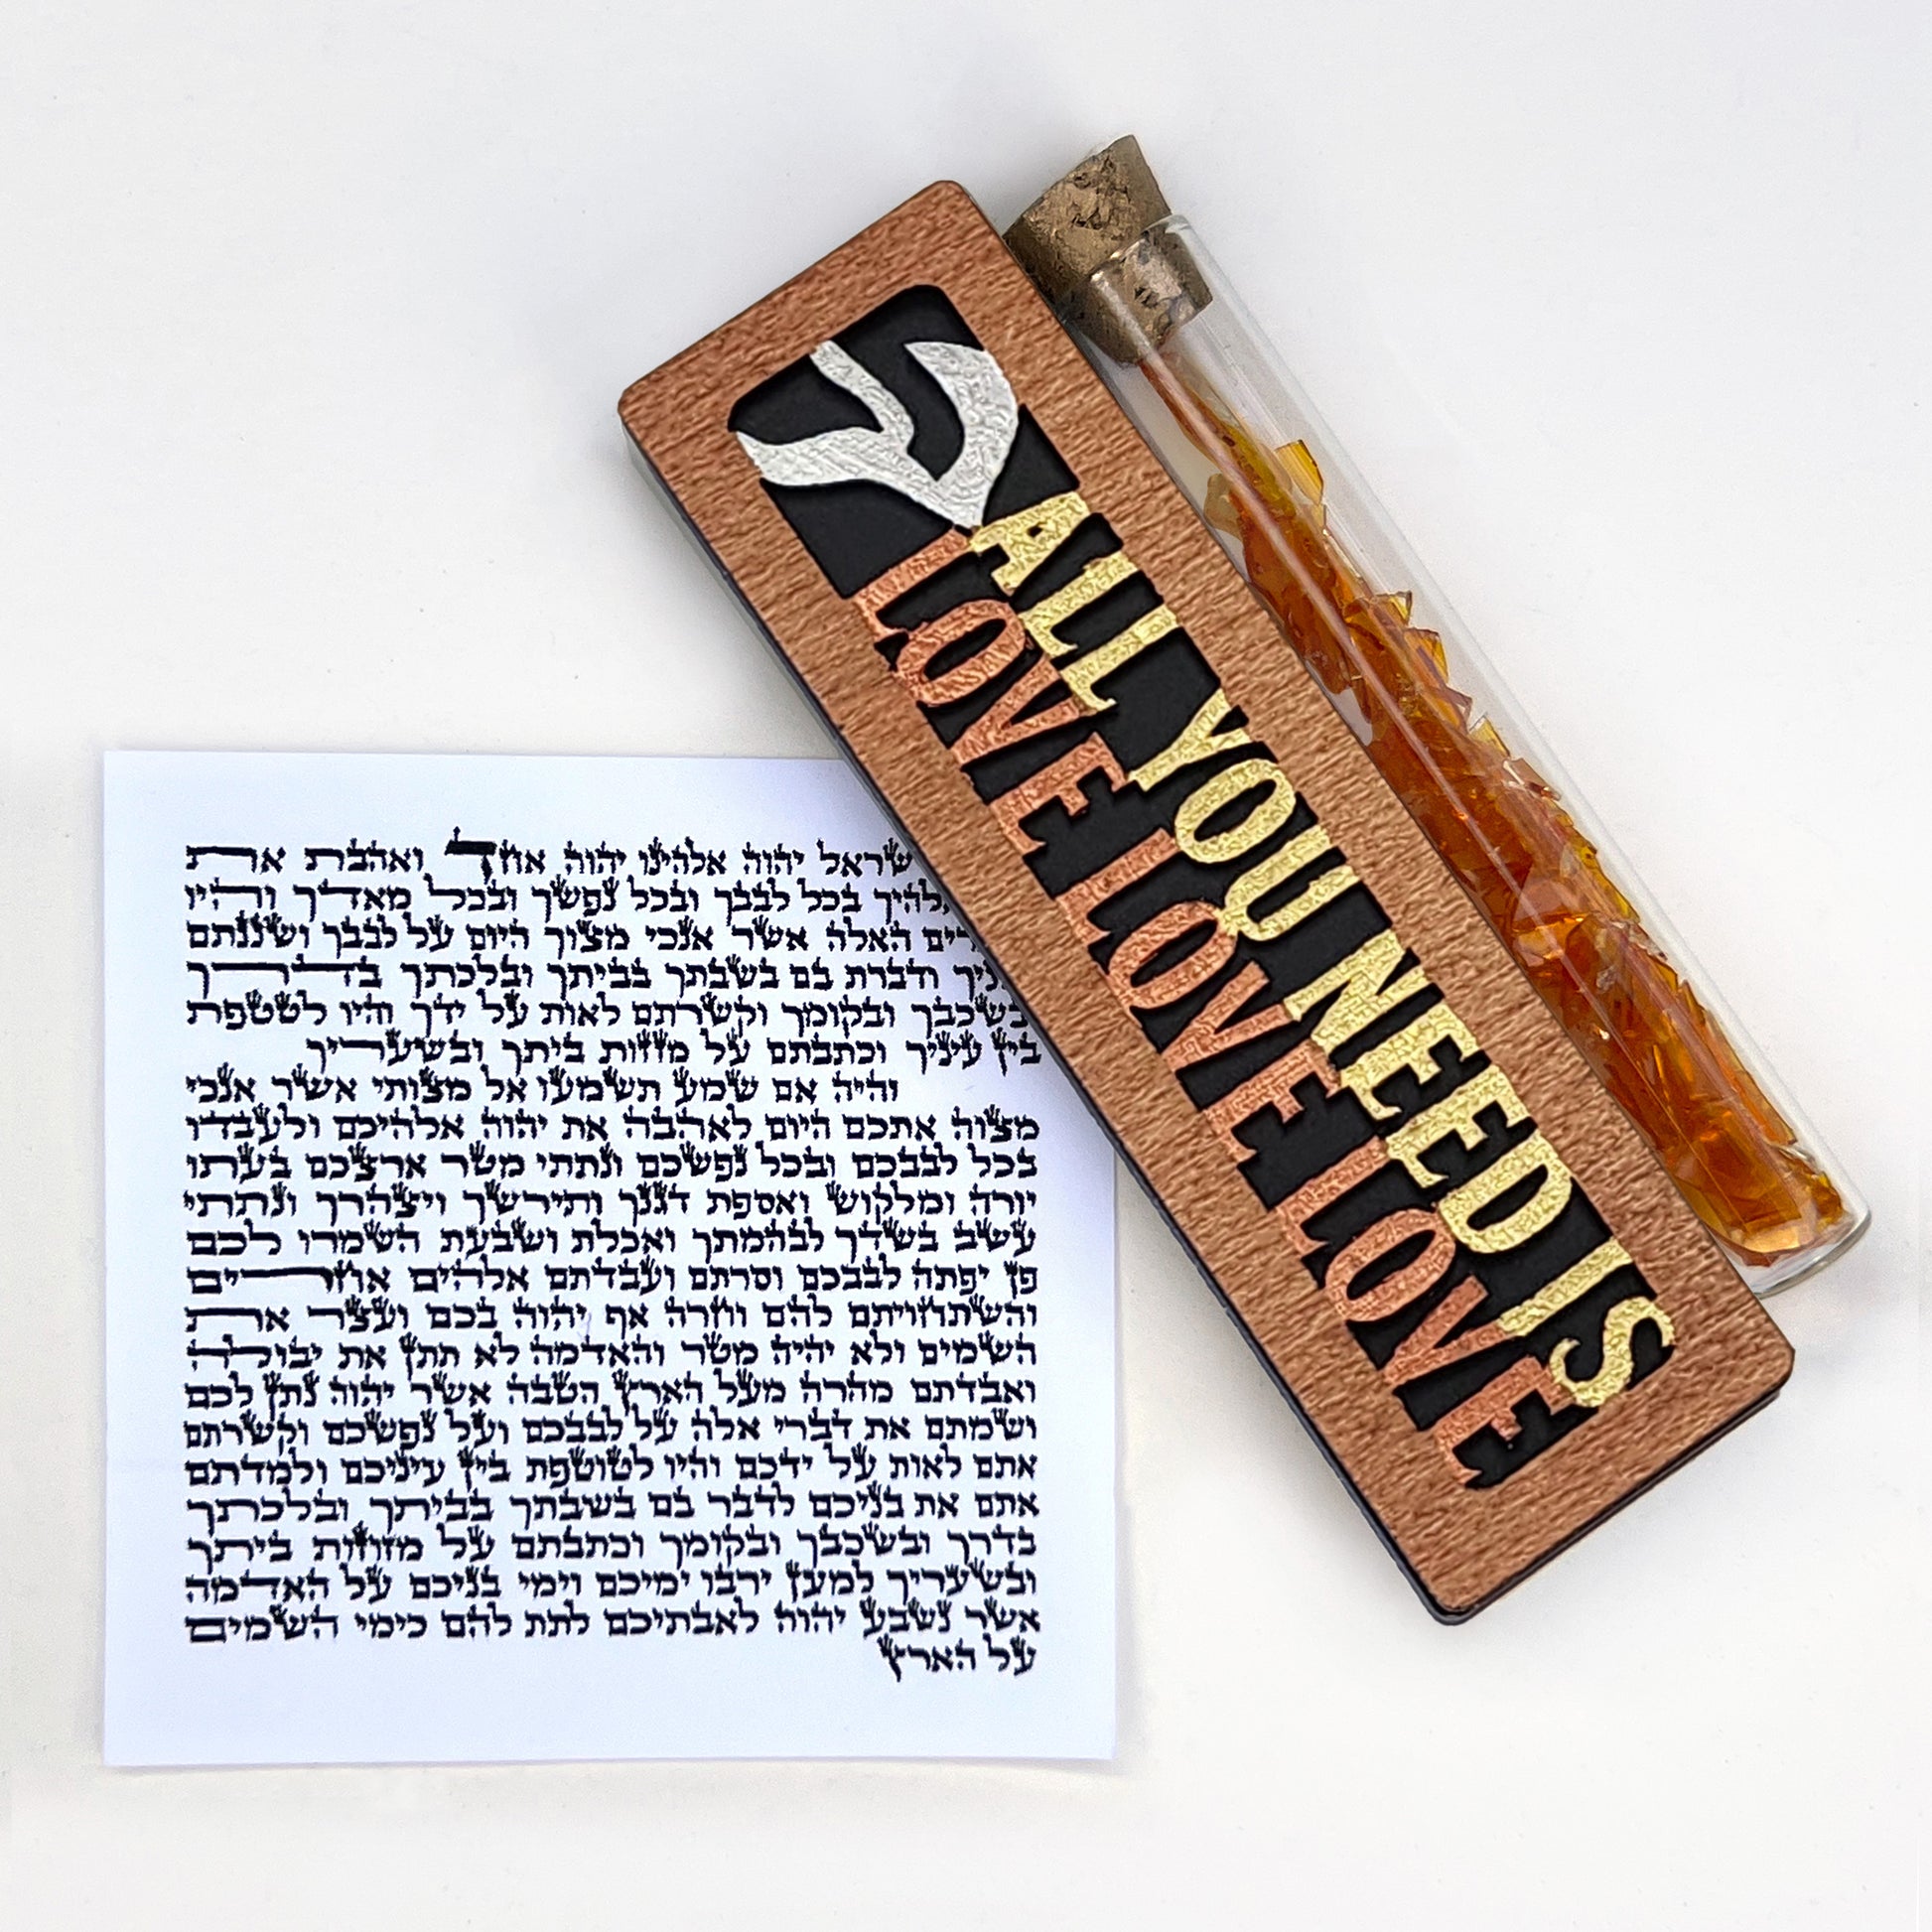 ש
ALL YOU NEED IS
LOVE LOVE LOVE
שראל יהוה אלהינו יהוה אחד ואהבת את
בכל לבבך ובכל נפשך ובכל מאדך והיו
האלה אשר אנכי מצוך היום על לבבך ושננתם
ודברת בם בשבתך בביתך ובלכתך בדרך
בשכבך ובקומך וקשרתם לאות על ידך והיו לטטפת
בין עיניך וכתבתם על מזזות ביתך ובשעריך
והיה אם שמע תשמעו אל מצותי אשר אנכי
מצוה אתכם היום לאהבה את יהוה אלהיכם ולעבדו
בכל לבבכם ובכל נפשכם ונתתי מטר ארצכם בעתו
יורה ומלקוש ואספת דגנך ותירשך ויצהרך ונתתי
עשב בשדך לבהמתך ואכלת ושבעת השמרו לכם
פן יפתה לבבכם וסרתם ועבדתם אלהים אחרים
והשתחויתם להם וחרה אף יהוה בכם ועצר את
השמים ולא יהיה מטר והאדמה לא תתן את יבולה
ואבדתם מהרה מעל הארץ הטבה אשר יהוה נתן לכם
ושמתם את דברי אלה על לבבכם ועל נפשכם וקשרתם
אתם לאות על ידכם והיו לטוטפת בין עיניכם ולמדתם
אתם את בניכם לדבר בם בשבתך בביתך ובלכתך
בדרך ובשכבך ובקומך וכתבתם על מזוזות ביתך
ובשעריך למען ירבו ימיכם וימי בניכם על האדמה
אשר נשבע יהוה לאבתיכם לתת להם כימי השמים
על הארץ